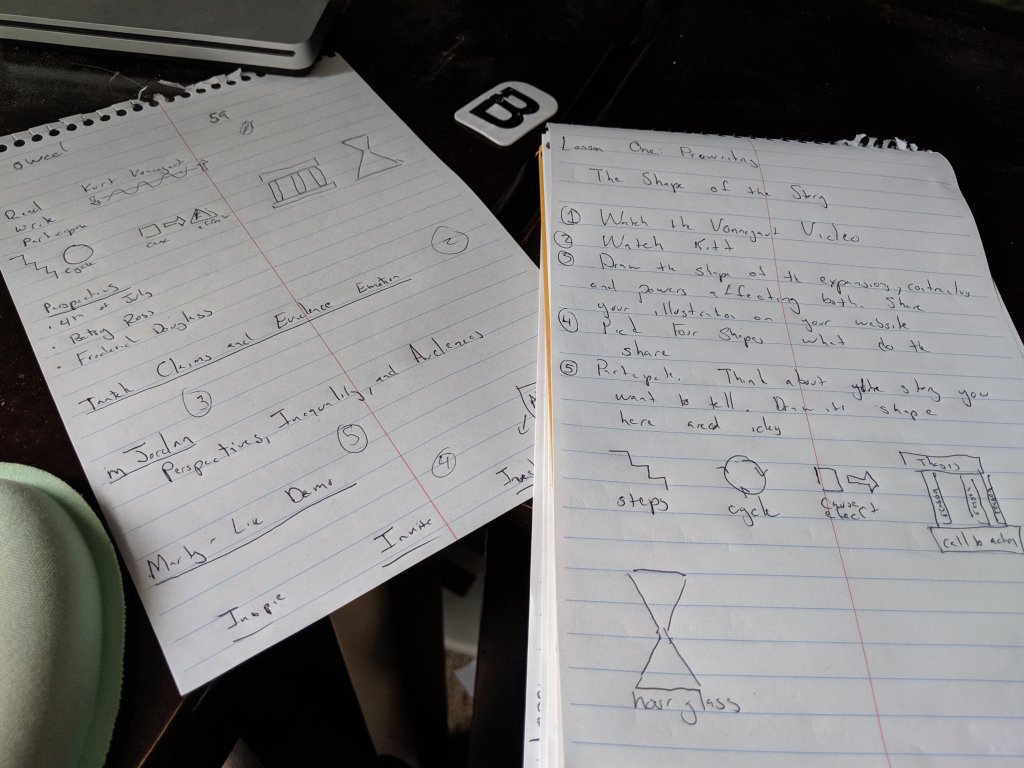 59
Kurt Vonnegut
Read
Write
Participate
cause
cycle
2
Perspectives
• 4th of July
• Betsy Ross
• Frederick Douglass
Claims and Evidence Emotion
3
Jordan
Perspectives, Inequality, and Audiences
5
4
Demo
Invite
B
Lesson One: Prewriting
The Shape of the Story
1 Watch the Vonnegut Video
2 Watch
3 Draw the shape of the expansion,
and powers affecting both. Share
your illustration on your website
4 Four Shapes what do th
share
5 Participate. Think about story you
want to tell. Draw its shape
here and
steps
cycle
Cause
effect
Thesis
reason
reason
reason
call to action
hour glass